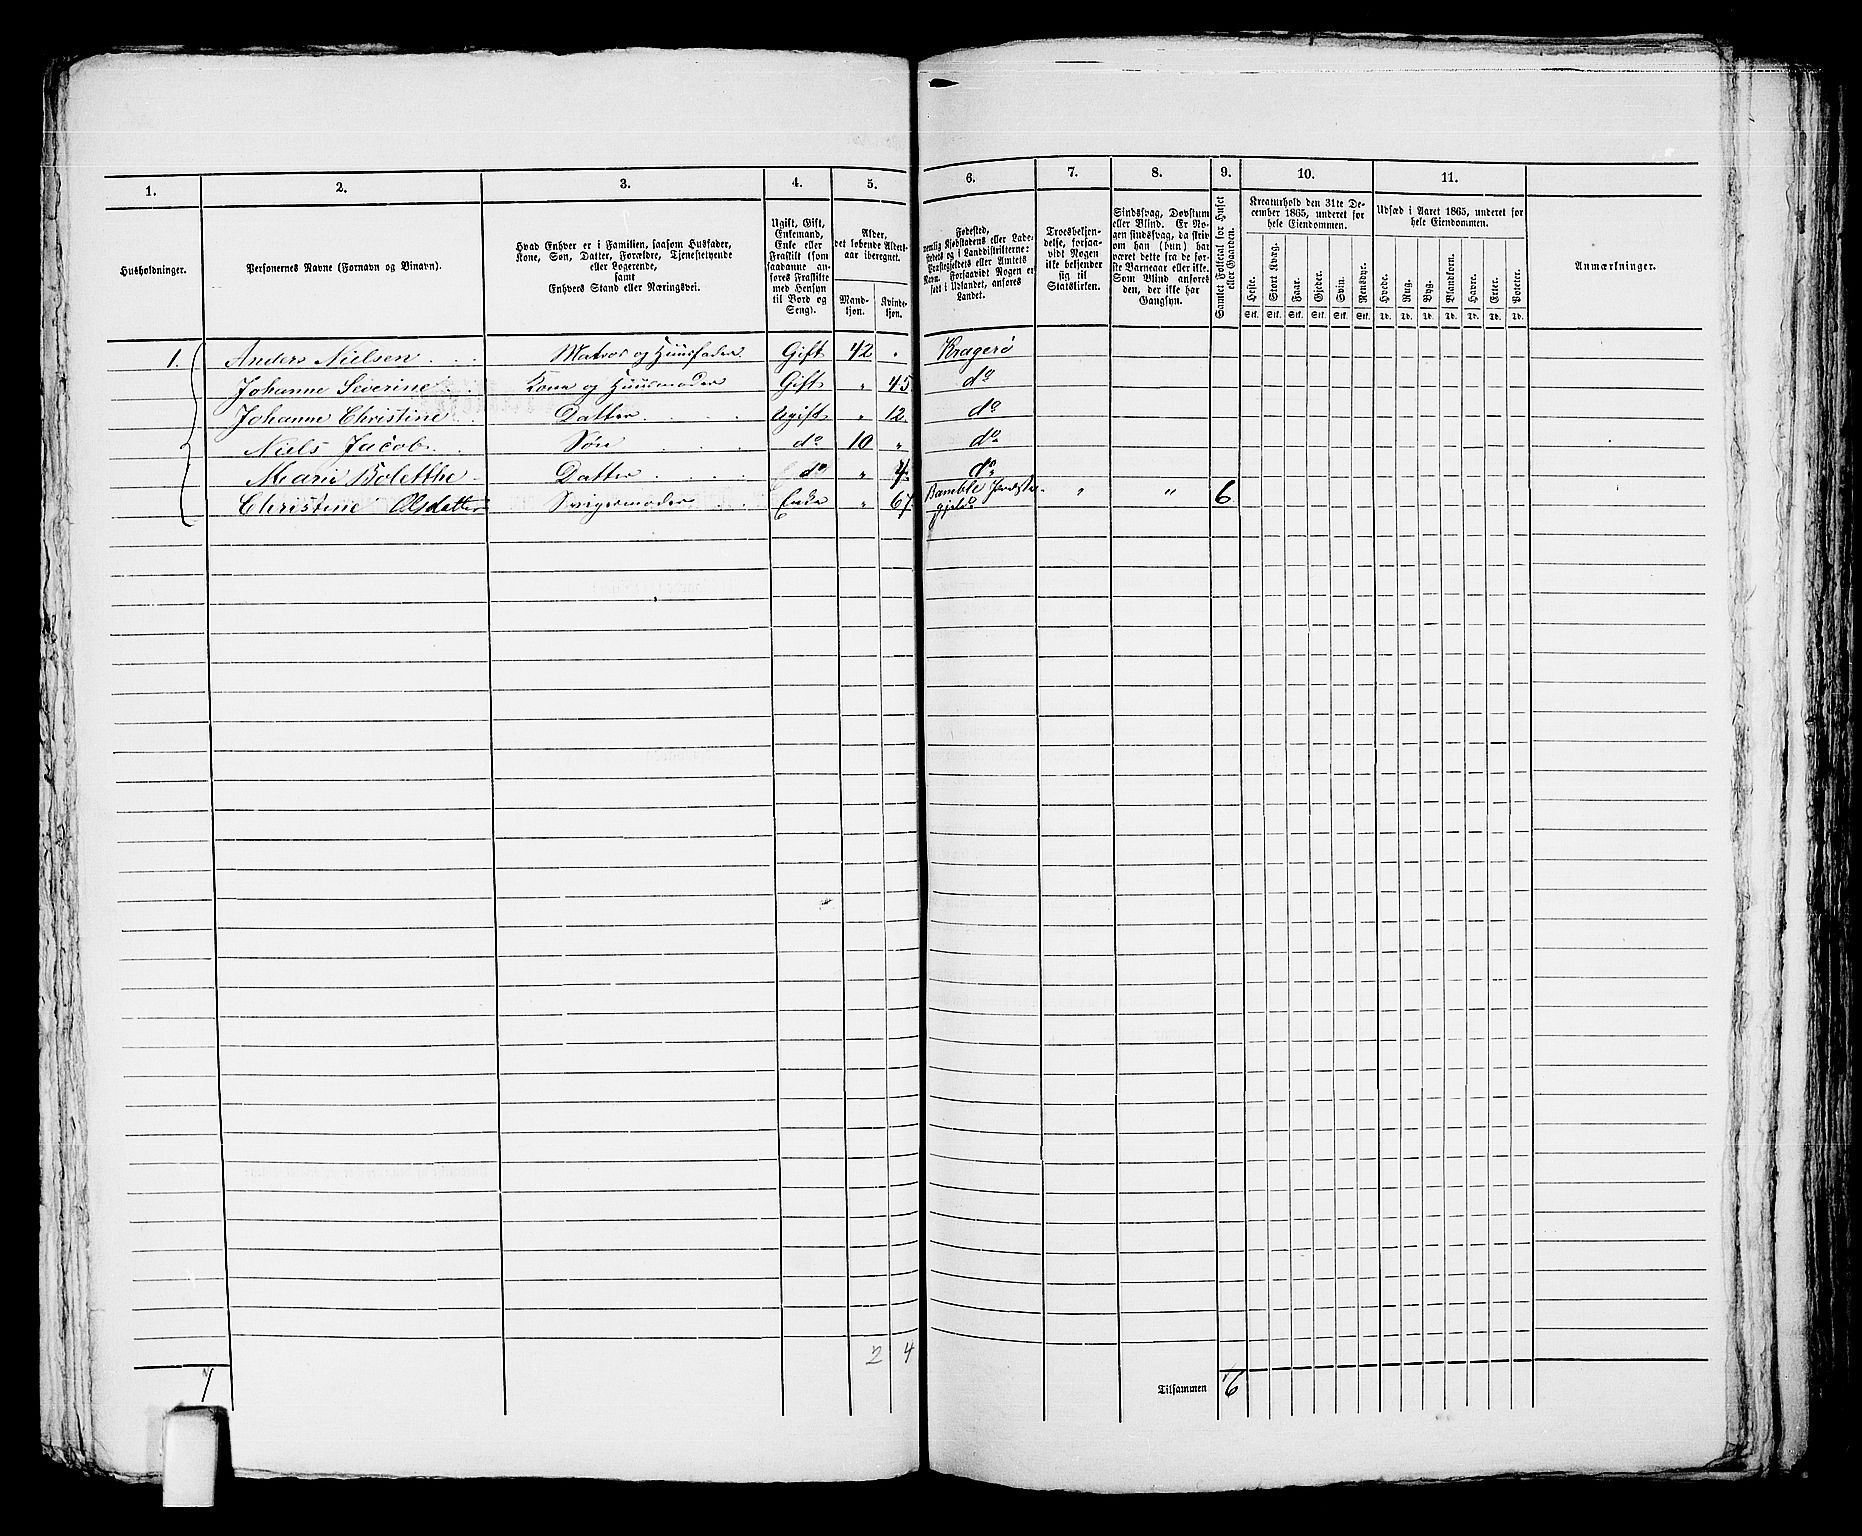 1. 2. 3. 4. 5. 6. 7. 8. 9. 10. 11.
Husholdninger.
Personernes Navne (Fornavn og Binavn).
Hvad Enhver er i Familien, saasom Husfader,
Kone, Søn, Datter, Forældre, Tjenestetyende
eller Logerende,
samt
Enhvers Stand eller Næringsvei.
Ugift, Gift,
Enkemand,
Enke eller
Fraskilt (som
saadanne an-
føres Fraskilte
med Hensyn
til Bord og
Seng).
Alder,
det løbende Alders-
aar iberegnet.
Mand-
kjøn.
Kvinde-
kjøn.
Fødested,
nemlig Kjøbstadens eller Lade-
stedets og i Landdistrikterne:
Præstegjeldets eller Amtets
Navn. Forsaavidt Nogen er
født i Udlandet, anføres
Landet.
Troesbekjen-
delse, forsaa-
vidt Nogen
ikke bekjender
sig til
Statskirken.
Sindssvag, Døvstum
eller Blind. Er No-
gen sindssvag, da skriv
om han (hun) har
været dette fra de før-
ste Barneaar eller ikke.
Som Blind anføres
den, der ikke har
Gangsyn.
Samlet Folketal for Huset
eller Gaarden.
Kreaturhold den 31te De-
cember 1865, underet for
hele Eiendommen.
Heste. Stort Kvæg. Faar. Gjeder. Svin. Rensdyr.
Stk. Stk. Stk. Stk. Stk. Stk.
Udsæd i Aaret 1865, underet for
hele Eiendommen.
Hvede. Rug. Byg. Blandkorn. Havre. Erter. Poteter.
Td. Td. Td. Td. Td. Td. Td.
Anmærkninger.
1. Anders Nielsen . . Matros og Huusfader Gift 42 " Kragerö
Johanne Severine Kone og Huusmoder Gift " 45 do
Johanne Christine Datter Ugift " 12 do
Niels Jacob Søn do 10 " do
Marie Bolethe Datter do " 4 do
Christine Olsdatter Svigermoder Enke " 67 Bamble Præste- " " 6
gjeld
1 2 4 Tilsammen 6